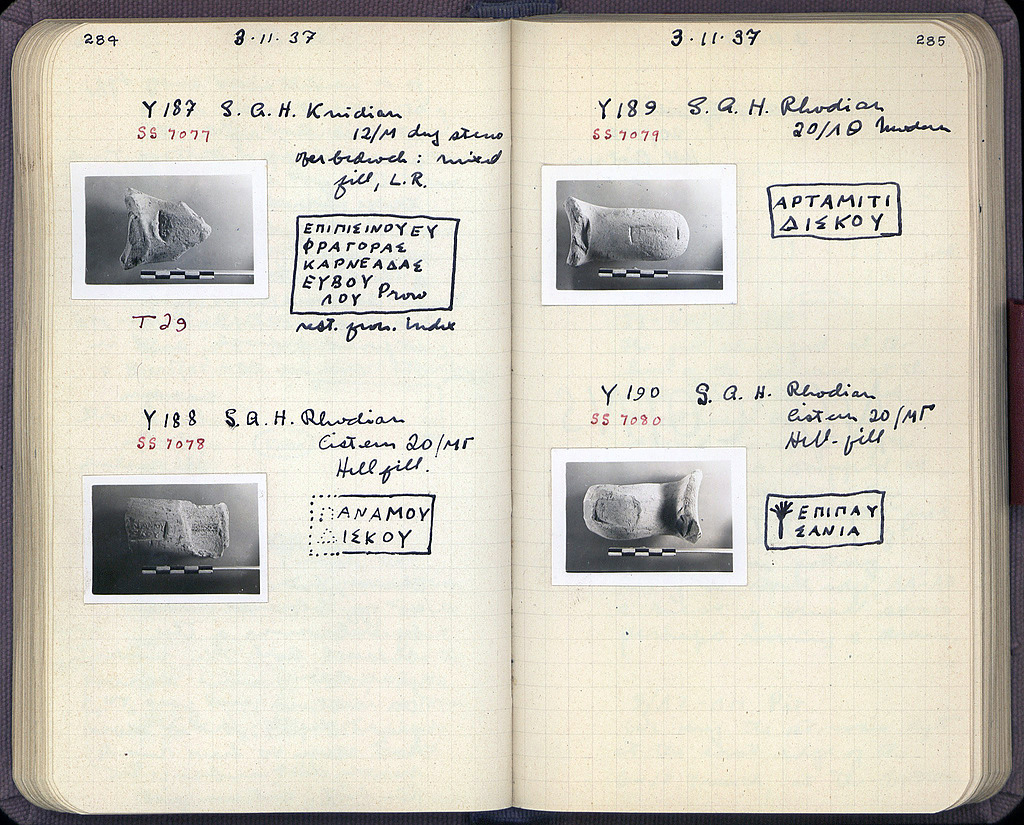 284
3·11·37
Y187 S. A. H. Knidian
SS 7077
12/M dug
mixed
fill, L.R.
ΕΠΙΠΙΣΙΝΟΥΕΥ
ΦΡΑΓΟΡΑΣ
ΚΑΡΝΕΑΔΑΣ
ΕΥΒΟΥ
ΛΟΥ Prow
T 29
rest. from. Index
Y188 S. A. H. Rhodian
SS 7078
Cistern 20/ΜΓ
Hell fill.
ΠΑΝΑΜΟΥ
ΔΙΣΚΟΥ
3·11·37
285
Y189 S. A. H. Rhodian
SS 7079
20/ΛΘ Modern
ΑΡΤΑΜΙΤΙ
ΔΙΣΚΟΥ
Y190 S. A. H. Rhodian
SS 7080
Cistern 20/ΜΓ
Hell-fill
ΕΠΙΠΑΥ
ΣΑΝΙΑ